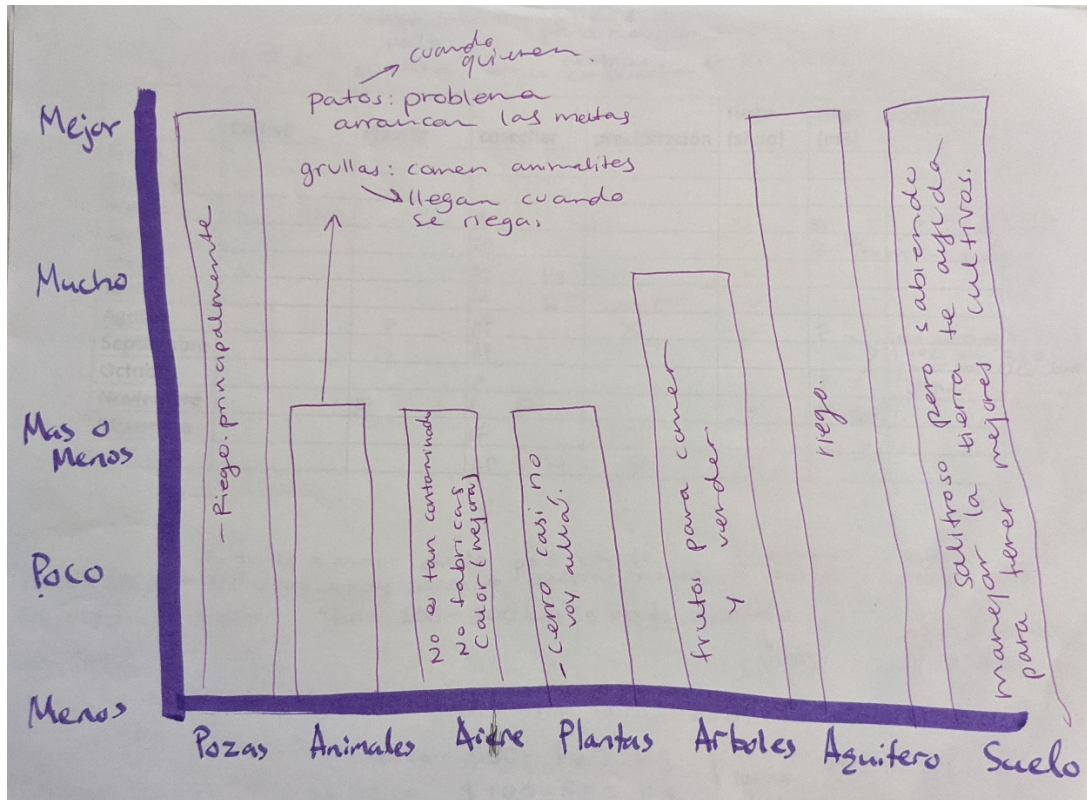 Mejor
Mucho
Mas o
Menos
Poco
Menos
cuando
quieren
patos: problema
arrancan las matas
grullas: comen animalites
llegan cuando
se riega.
- Riego principalmente
no es tan contaminado
no fabricas
Calor (mejora)
- Cerro casi no
voy allá.
frutos para comer
y vender
riego.
Salitroso pero sabiendo
manejar la tierra te ayuda
para tener mejores cultivos.
Pozas
Animales
Aire
Plantas
Arboles
Aquifero
Suelo